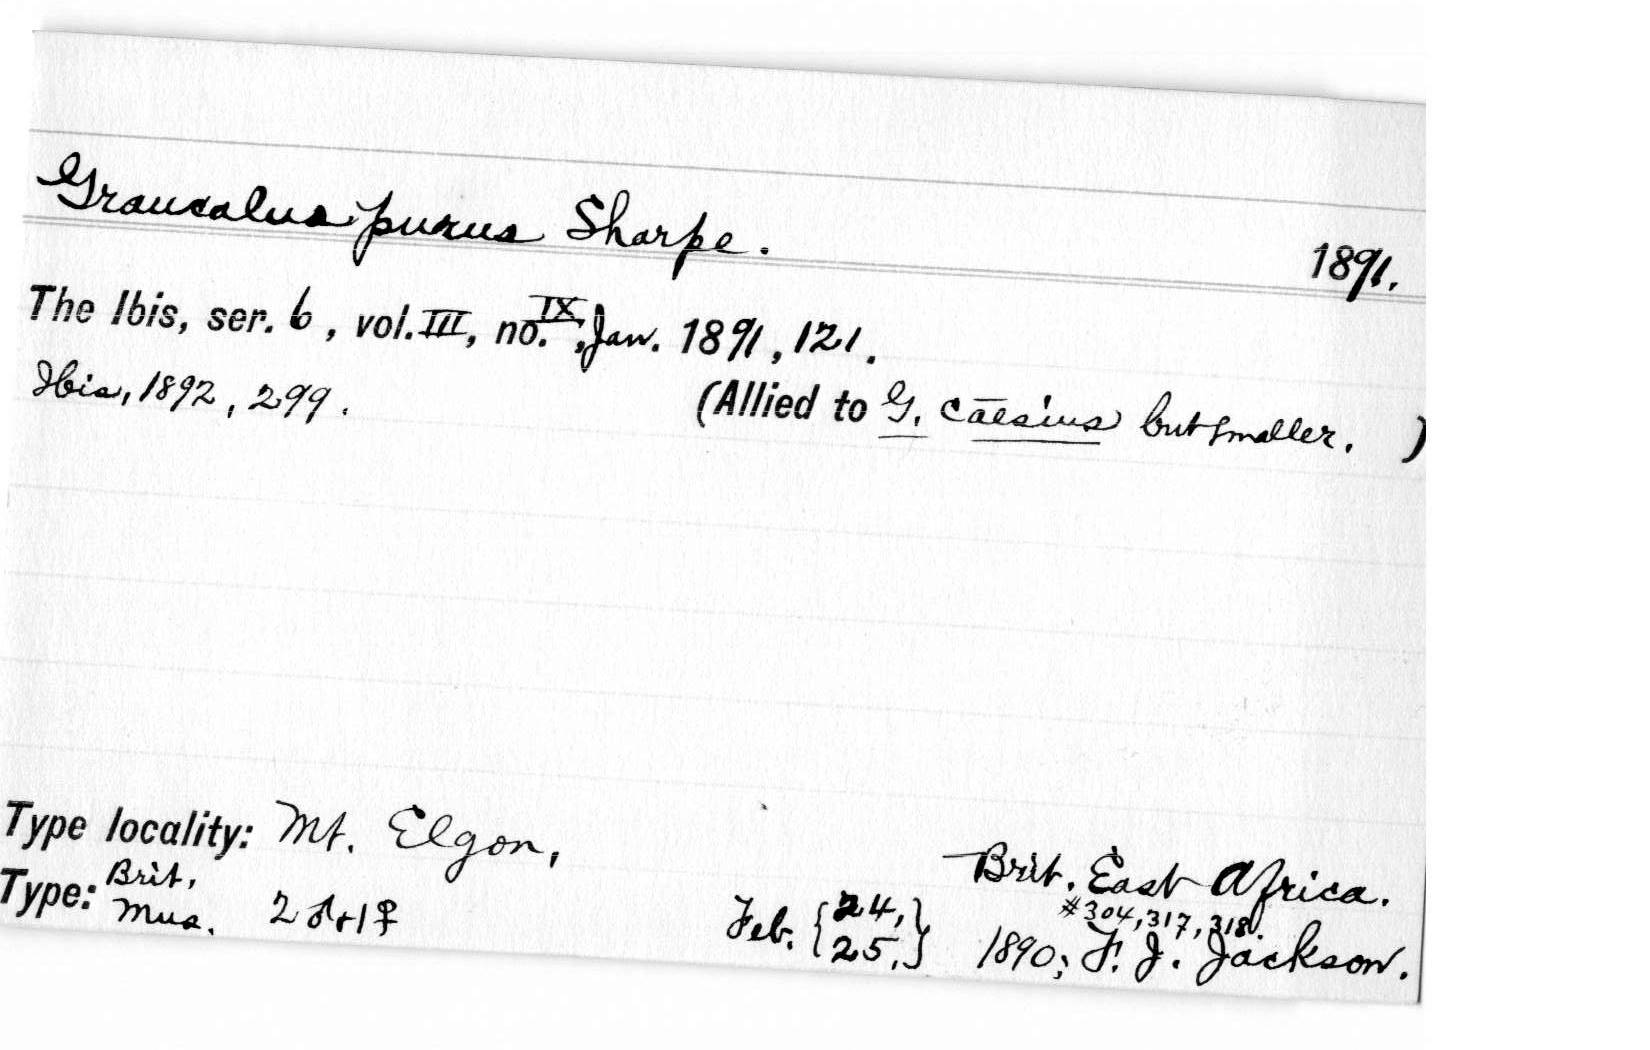 Graucalus purus Sharpe. 1891.
The Ibis, ser. 6, vol. III, no. IX, Jan. 1891, 121.
Ibis, 1892, 299. (Allied to G. cāesius but smaller. )
Type locality: Mt. Elgon,
Brit. East Africa.
Type: Brit. Mus. 2 ♂ + 1 ♀ Feb. {24, 25,} 1890; F. J. Jackson.
#304, 317, 318.